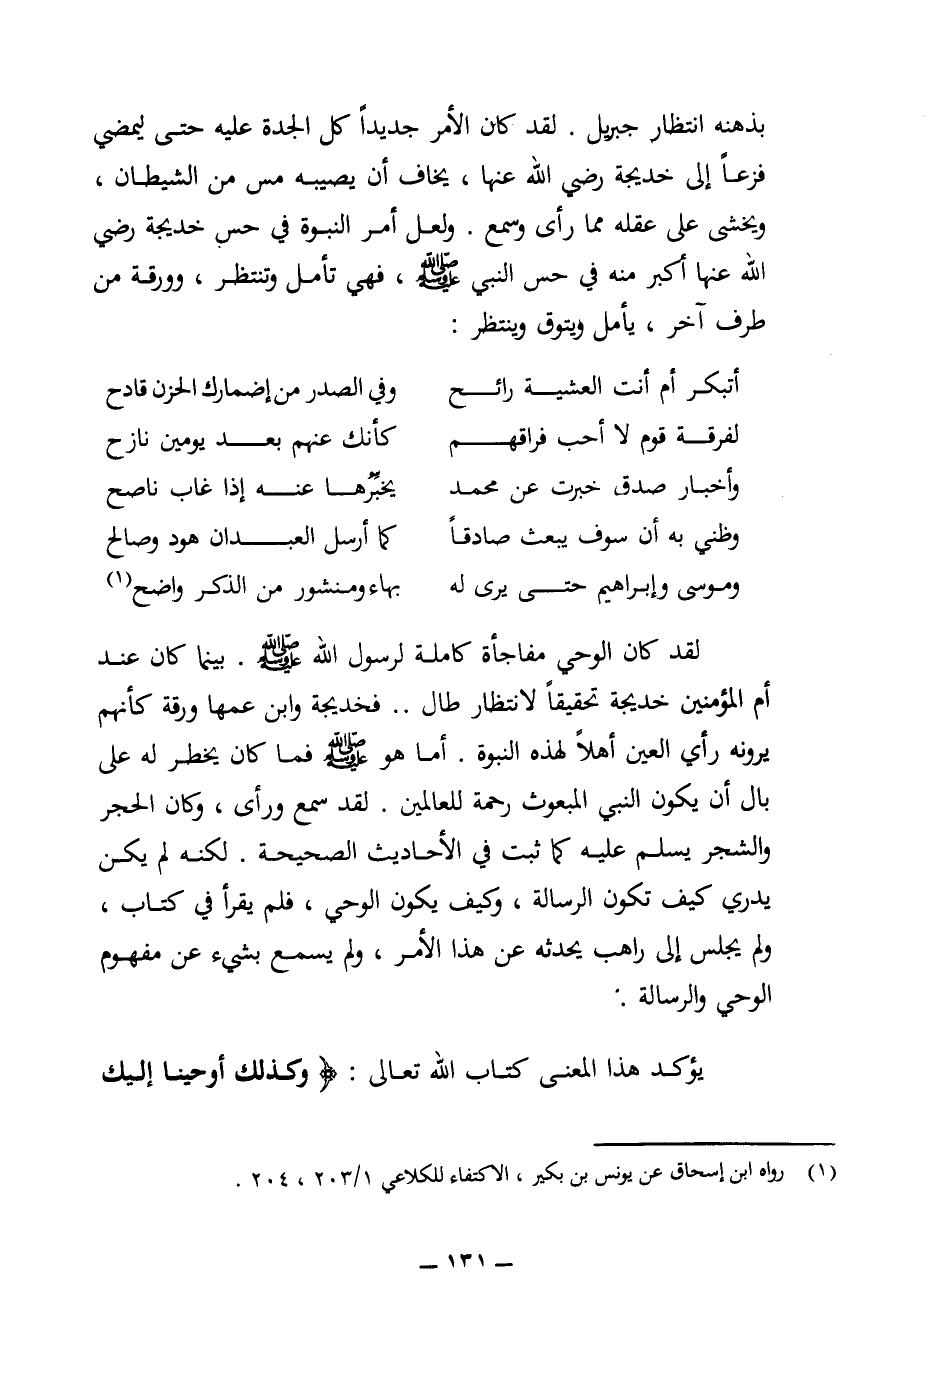 بذهنه انتظار جبريل . لقد كان الأمر جديداً كل الجدة عليه حتى ليمضي
فزعاً إلى خديجة رضي الله عنها ، يخاف أن يصيبه مس من الشيطان ،
ويخشى على عقله مما رأى وسمع . ولعل أمر النبوة في حس خديجة رضي
الله عنها أكبر منه في حس النبي ﷺ ، فهي تأمل وتنتظر ، وورقة من
طرف آخر ، يأمل ويتوق وينتظر :
أتبكر أم أنت العشية رائح وفي الصدر من إضمارك الحزن قادح
لفرقة قوم لا أحب فراقهم كأنك عنهم بعد يومين نازح
وأخبار صدق خبرت عن محمد يخبِّرها عنه إذا غاب ناصح
وظني به أن سوف يبعث صادقاً كما أرسل العبدان هود وصالح
وموسى وإبراهيم حتى يرى له بهاء ومنشور من الذكر واضح(١)
لقد كان الوحي مفاجأة كاملة لرسول الله ﷺ . بينما كان عند
أم المؤمنين خديجة تحقيقاً لانتظار طال .. فخديجة وابن عمها ورقة كأنهم
يرونه رأي العين أهلاً لهذه النبوة . أما هو ﷺ فما كان يخطر له على
بال أن يكون النبي المبعوث رحمة للعالمين . لقد سمع ورأى ، وكان الحجر
والشجر يسلم عليه كما ثبت في الأحاديث الصحيحة . لكنه لم يكن
يدري كيف تكون الرسالة ، وكيف يكون الوحي ، فلم يقرأ في كتاب ،
ولم يجلس إلى راهب يحدثه عن هذا الأمر ، ولم يسمع بشيء عن مفهوم
الوحي والرسالة .
يؤكد هذا المعنى كتاب الله تعالى : ﴿ وكذلك أوحينا إليك
(١) رواه ابن إسحاق عن يونس بن بكير ، الاكتفاء للكلاعي ٢٠٣/١ ، ٢٠٤ .
ــ ١٣١ ــ